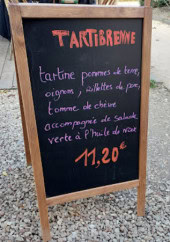 TARTIBRENNE
tartine pommes de terre,
oignons, rillettes de porc,
tomme de chèvre
accompagnée de salade
verte à l'huile de noix
11,20€